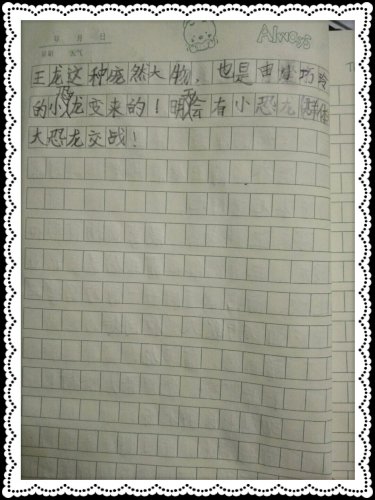 年 月 日
Always
星期 天气
王龙这种庞然大物，也是由
的小恐龙变来的！明天会有小恐龙群体
大恐龙交战！